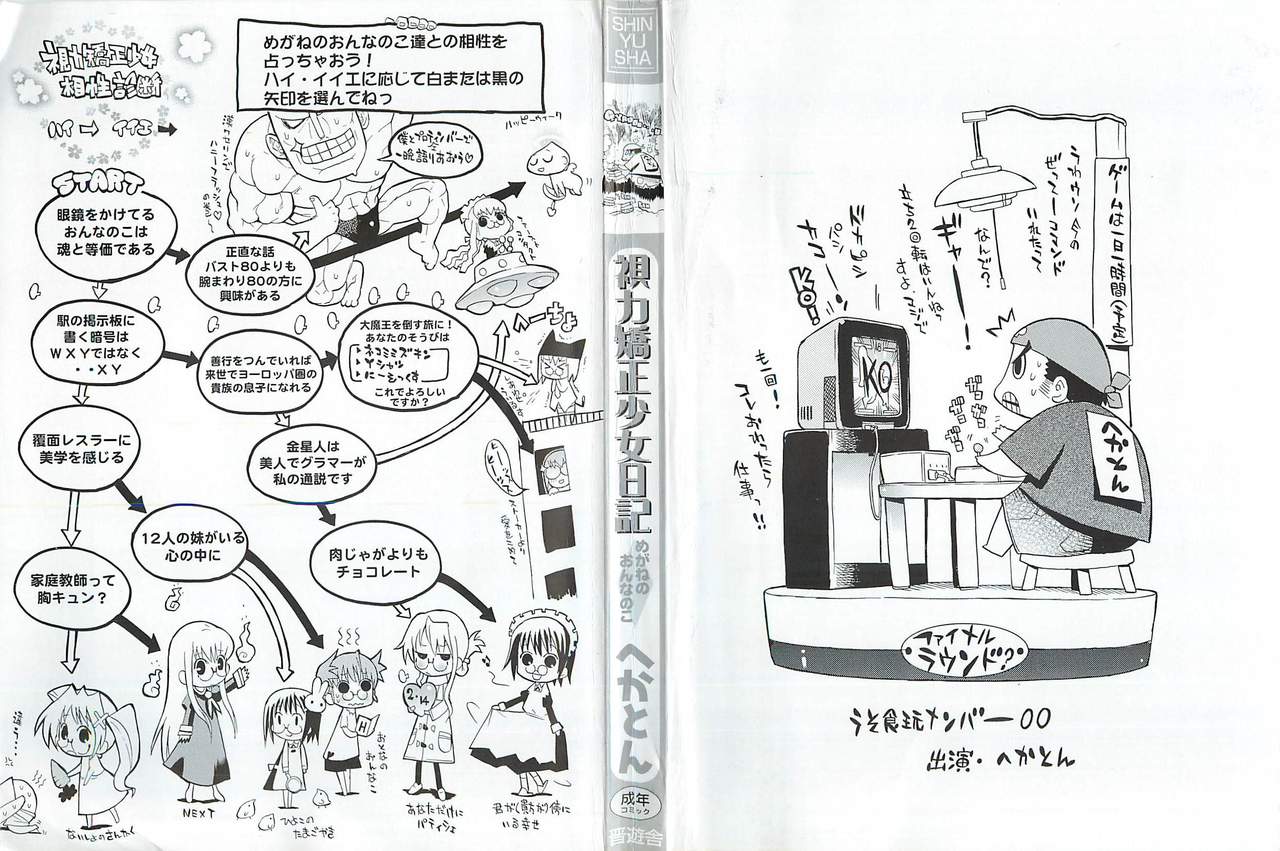 視力矯正少女
相性診断
ハイ イイエ
めがねのおんなのこ達との相性を
占っちゃおう！
ハイ・イイエに応じて白または黒の
矢印を選んでねっ
START
眼鏡をかけてる
おんなのこは
魂と等価である
正直な話
バスト80よりも
腕まわり80の方に
興味がある
僕とプロテインバーで
一晩語りあおう♡
駅の掲示板に
書く暗号は
WXYではなく
・・XY
善行をつんでいれば
来世でヨーロッパ圏の
貴族の息子になれる
大魔王を倒す旅に！
あなたのそうびは
ネコミミズキン
Yシャツ
にーそっくす
これでよろしい
ですか？
へーちょ
覆面レスラーに
美学を感じる
金星人は
美人でグラマーが
私の通説です
12人の妹がいる
心の中に
肉じゃがよりも
チョコレート
家庭教師って
胸キュン？
ないしょのさんかく
NEXT
ひよこの
たまごやき
おとなの
おんなのこ
2・14
H
あなただけに
パティシエ
君が(貴方が)傍に
いる幸せ
SHIN
YU
SHA
視力矯正少女日記
めがねの
おんなのこ
へかとん
成年
コミック
晋遊舎
ゲームは一日一時間(予定)
うわウソ 今の
ぜってーコマンド
いれたて〜
なんで？
ギャーーー！
KO！
KO
も一回！
コレおわったら
仕事っ！！
へかとん
ファイナル
ラウンド？
うそ食玩メンバー00
出演・へかとん